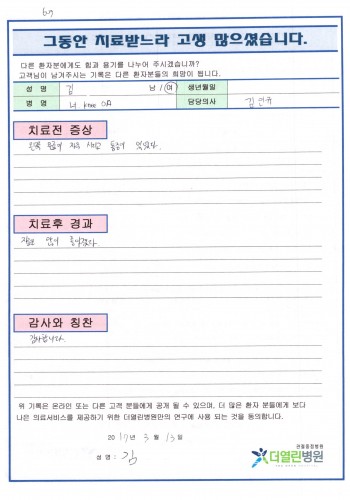 그동안 치료받느라 고생 많으셨습니다.
다른 환자분에게도 힘과 용기를 나누어 주시겠습니까?
고객님이 남겨주시는 기록은 다른 환자분들의 희망이 됩니다.
성 명 김 남 / 여 생년월일
병 명 Knee OA 담당의사 김
치료전 증상
왼쪽 무릎이 있었다.
치료후 경과
치료 좋아졌다.
감사와 칭찬
감사합니다.
위 기록은 온라인 또는 다른 고객 분들에게 공개 될 수 있으며, 더 많은 환자 분들에게 보다
나은 의료서비스를 제공하기 위한 더열린병원만의 연구에 사용 되는 것을 동의합니다.
2017년 3월 13일
성 명 : 김
관절중점병원
더열린병원